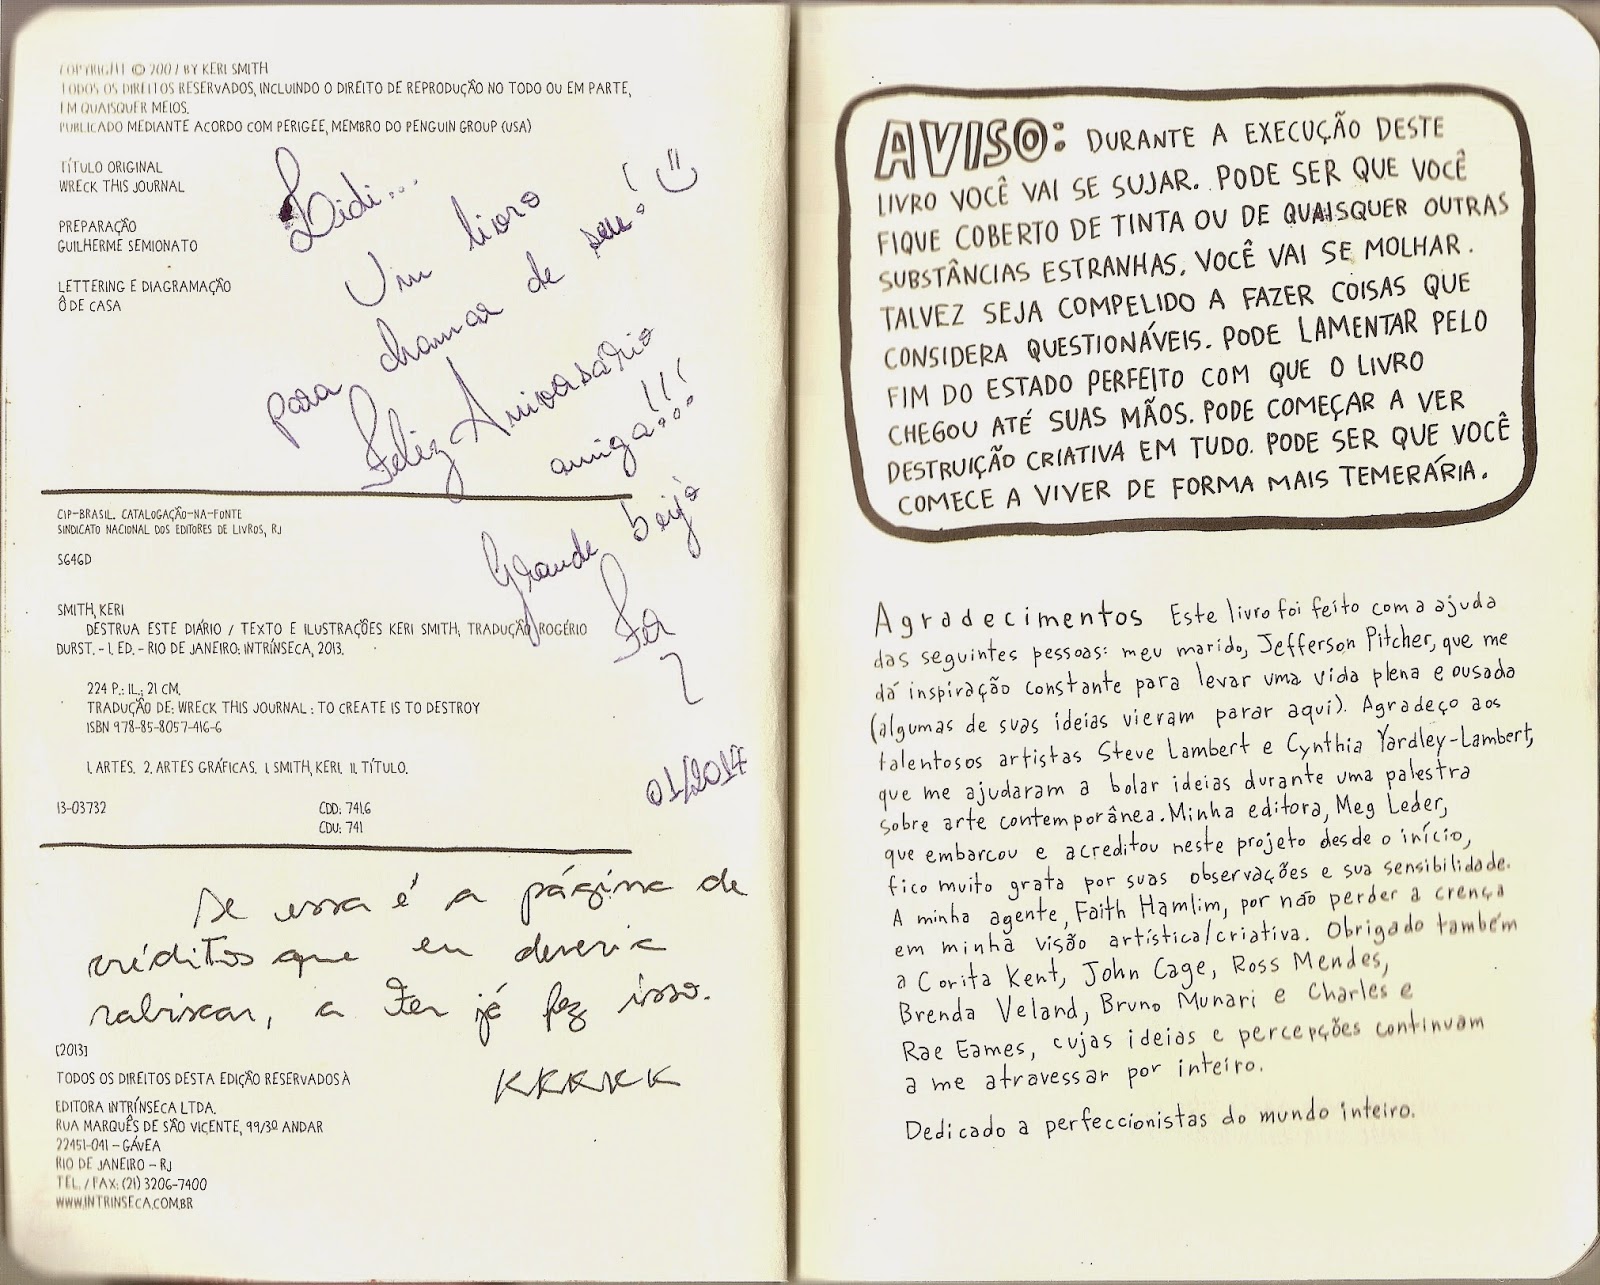 COPYRIGHT © 2007 BY KERI SMITH
TODOS OS DIREITOS RESERVADOS, INCLUINDO O DIREITO DE REPRODUÇÃO NO TODO OU EM PARTE,
EM QUAISQUER MEIOS.
PUBLICADO MEDIANTE ACORDO COM PERIGEE, MEMBRO DO PENGUIN GROUP (USA)
TÍTULO ORIGINAL
WRECK THIS JOURNAL
PREPARAÇÃO
GUILHERME SEMIONATO
LETTERING E DIAGRAMAÇÃO
Ô DE CASA
Bidi...
Um livro
para chamar de seu!
Feliz Aniversário
amiga!!!
Grande beijo
Fer
01/2014
CIP-BRASIL. CATALOGAÇÃO-NA-FONTE
SINDICATO NACIONAL DOS EDITORES DE LIVROS, RJ
S646D
SMITH, KERI
DESTRUA ESTE DIÁRIO / TEXTO E ILUSTRAÇÕES KERI SMITH; TRADUÇÃO ROGÉRIO
DURST. - 1. ED. - RIO DE JANEIRO: INTRÍNSECA, 2013.
224 P.: IL.; 21 CM.
TRADUÇÃO DE: WRECK THIS JOURNAL : TO CREATE IS TO DESTROY
ISBN 978-85-8057-416-6
1. ARTES. 2. ARTES GRÁFICAS. I. SMITH, KERI. II. TÍTULO.
13-03732 CDD: 741.6
CDU: 741
Se essa é a página de
créditos que eu deveria
rabiscar, a Fer já fez isso.
KKKKK
[2013]
TODOS OS DIREITOS DESTA EDIÇÃO RESERVADOS À
EDITORA INTRÍNSECA LTDA.
RUA MARQUÊS DE SÃO VICENTE, 99/3º ANDAR
22451-041 – GÁVEA
RIO DE JANEIRO – RJ
TEL. / FAX: (21) 3206-7400
WWW.INTRINSECA.COM.BR
AVISO: DURANTE A EXECUÇÃO DESTE
LIVRO VOCÊ VAI SE SUJAR. PODE SER QUE VOCÊ
FIQUE COBERTO DE TINTA OU DE QUAISQUER OUTRAS
SUBSTÂNCIAS ESTRANHAS. VOCÊ VAI SE MOLHAR.
TALVEZ SEJA COMPELIDO A FAZER COISAS QUE
CONSIDERA QUESTIONÁVEIS. PODE LAMENTAR PELO
FIM DO ESTADO PERFEITO COM QUE O LIVRO
CHEGOU ATÉ SUAS MÃOS. PODE COMEÇAR A VER
DESTRUIÇÃO CRIATIVA EM TUDO. PODE SER QUE VOCÊ
COMECE A VIVER DE FORMA MAIS TEMERÁRIA.
Agradecimentos Este livro foi feito com a ajuda
das seguintes pessoas: meu marido, Jefferson Pitcher, que me
dá inspiração constante para levar uma vida plena e ousada
(algumas de suas ideias vieram parar aqui). Agradeço aos
talentosos artistas Steve Lambert e Cynthia Yardley-Lambert,
que me ajudaram a bolar ideias durante uma palestra
sobre arte contemporânea. Minha editora, Meg Leder,
que embarcou e acreditou neste projeto desde o início,
fico muito grata por suas observações e sua sensibilidade.
A minha agente, Faith Hamlim, por não perder a crença
em minha visão artística/criativa. Obrigado também
a Corita Kent, John Cage, Ross Mendes,
Brenda Veland, Bruno Munari e Charles e
Rae Eames, cujas ideias e percepções continuam
a me atravessar por inteiro.
Dedicado a perfeccionistas do mundo inteiro.